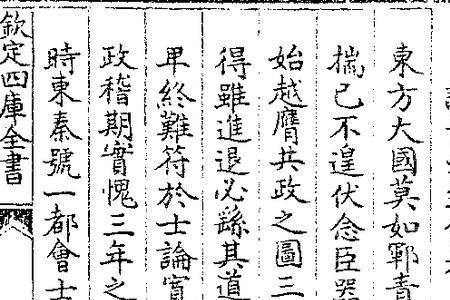 東方大國莫如鄆青
揣已不遑伏念臣器
始越膺共政之圖三
得雖進退必繇其道
早終難符於士論實
政稽期實愧三年之
時東秦號一都會士
欽定四庫全書